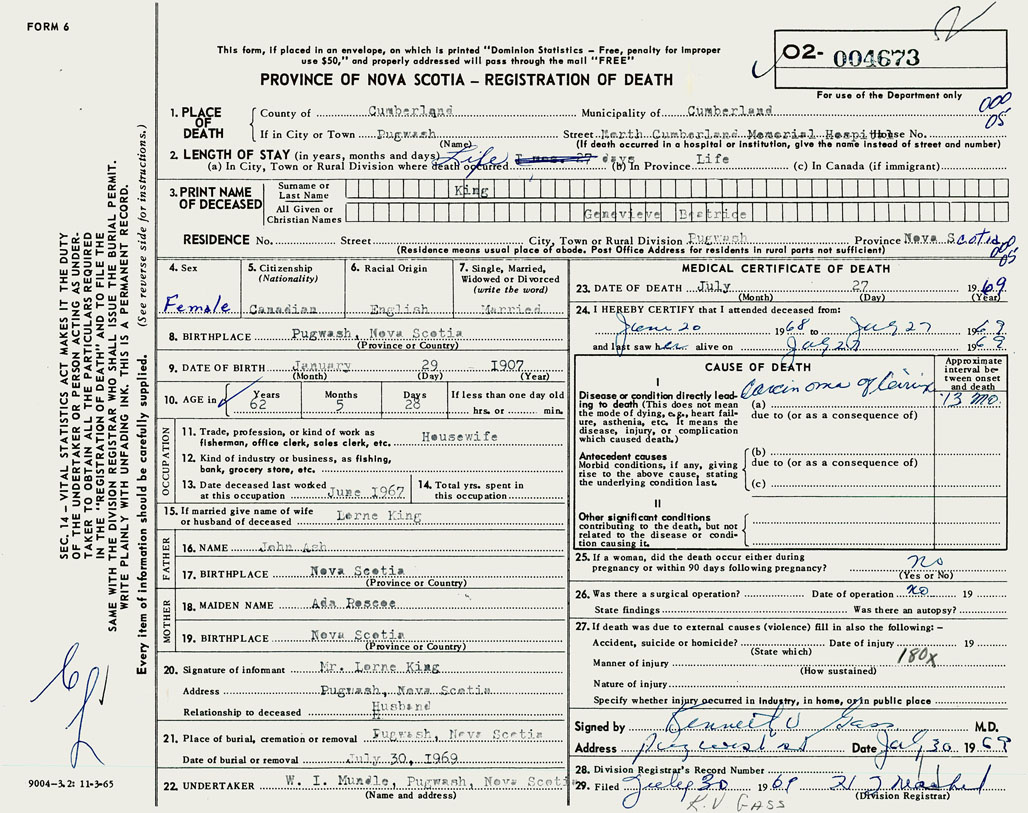 FORM 6
This form, if placed in an envelope, on which is printed "Dominion Statistics – Free, penalty for improper
use $50," and properly addressed will pass through the mail "FREE"
PROVINCE OF NOVA SCOTIA – REGISTRATION OF DEATH
O2- 004673
For use of the Department only
000
05
1. PLACE OF DEATH
County of Cumberland Municipality of Cumberland
If in City or Town Pugwash Street North Cumberland Memorial Hospital House No.
(Name) (If death occurred in a hospital or institution, give the name instead of street and number)
2. LENGTH OF STAY (in years, months and days)
(a) In City, Town or Rural Division where death occurred Life days (b) In Province Life (c) In Canada (if immigrant)
3. PRINT NAME OF DECEASED
Surname or Last Name King
All Given or Christian Names Genevieve Beatrice
RESIDENCE No. Street City, Town or Rural Division Pugwash Province Nova Scotia
(Residence means usual place of abode. Post Office Address for residents in rural parts not sufficient)
000
05
4. Sex Female
5. Citizenship (Nationality) Canadian
6. Racial Origin English
7. Single, Married, Widowed or Divorced (write the word) Married
8. BIRTHPLACE Pugwash, Nova Scotia
(Province or Country)
9. DATE OF BIRTH January 29 1907
(Month) (Day) (Year)
10. AGE in Years 62 Months 5 Days 28 If less than one day old hrs. or min.
OCCUPATION
11. Trade, profession, or kind of work as fisherman, office clerk, sales clerk, etc. Housewife
12. Kind of industry or business, as fishing, bank, grocery store, etc.
13. Date deceased last worked at this occupation June 1967
14. Total yrs. spent in this occupation
15. If married give name of wife or husband of deceased Lorne King
FATHER
16. NAME John Ash
17. BIRTHPLACE Nova Scotia
(Province or Country)
MOTHER
18. MAIDEN NAME Ada Roscoe
19. BIRTHPLACE Nova Scotia
(Province or Country)
20. Signature of informant Mr. Lorne King
Address Pugwash, Nova Scotia
Relationship to deceased Husband
21. Place of burial, cremation or removal Pugwash, Nova Scotia
Date of burial or removal July 30, 1969
22. UNDERTAKER W. I. Mundle, Pugwash, Nova Scotia
(Name and address)
MEDICAL CERTIFICATE OF DEATH
23. DATE OF DEATH July 27 1969
(Month) (Day) (Year)
24. I HEREBY CERTIFY that I attended deceased from:
June 20 1968 to July 27 1969
and last saw her alive on July 27 1969
CAUSE OF DEATH
Approximate interval between onset and death
I
Disease or condition directly leading to death (This does not mean the mode of dying, e.g., heart failure, asthenia, etc. It means the disease, injury, or complication which caused death.)
(a) Carcinoma of Cervix 13 mo.
due to (or as a consequence of)
Antecedent causes
Morbid conditions, if any, giving rise to the above cause, stating the underlying condition last.
(b)
due to (or as a consequence of)
(c)
II
Other significant conditions contributing to the death, but not related to the disease or condition causing it.
25. If a woman, did the death occur either during pregnancy or within 90 days following pregnancy? no
(Yes or No)
26. Was there a surgical operation? Date of operation no 19
State findings Was there an autopsy?
27. If death was due to external causes (violence) fill in also the following: –
Accident, suicide or homicide? Date of injury 19
(State which)
Manner of injury 180x
(How sustained)
Nature of injury
Specify whether injury occurred in industry, in home, or in public place
Signed by Kenneth V Gass M.D.
Address Date July 30 1969
28. Division Registrar's Record Number
29. Filed July 30 1969
(Division Registrar)
K.V GASS
SEC. 14 – VITAL STATISTICS ACT MAKES IT THE DUTY
OF THE UNDERTAKER OR PERSON ACTING AS UNDER-
TAKER TO OBTAIN ALL THE PARTICULARS REQUIRED
IN THE "REGISTRATION OF DEATH" AND TO FILE THE
SAME WITH THE DIVISION REGISTRAR WHO SHALL ISSUE THE BURIAL PERMIT.
WRITE PLAINLY WITH UNFADING INK. THIS IS A PERMANENT RECORD.
Every item of information should be carefully supplied. (See reverse side for instructions.)
9004-3.2: 11-3-65